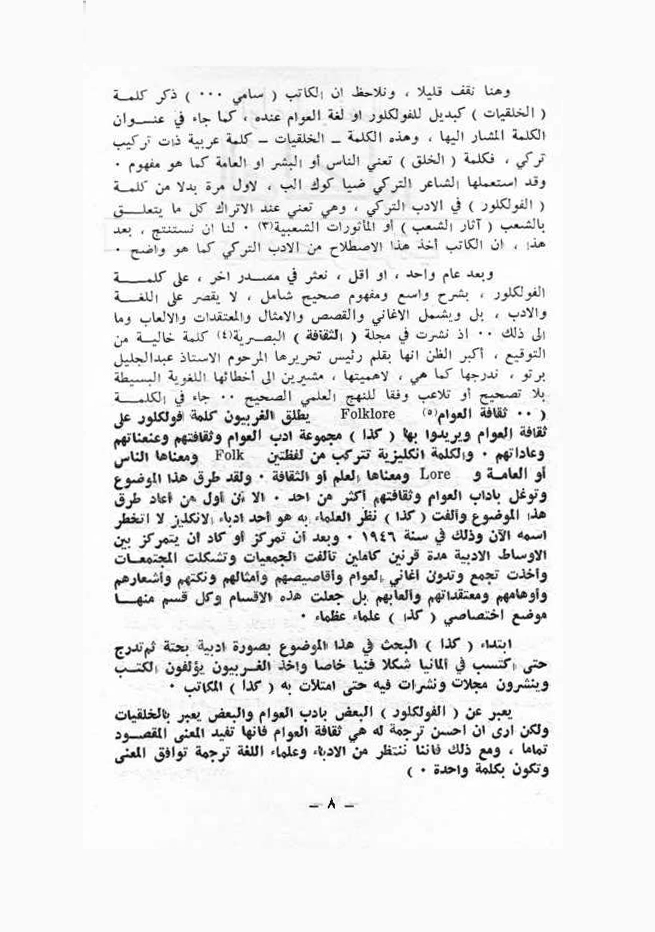 وهنا نقف قليلا ، ونلاحظ ان الكاتب ( سامي ٠٠٠ ) ذكر كلمـة
( الخلقيات ) كبديل للفولكلور او لغة العوام عنده ، كما جاء في عنـوان
الكلمة المشار اليها ، وهذه الكلمة ــ الخلقيات ــ كلمة عربية ذات تركيب
تركي ، فكلمة ( الخلق ) تعني الناس أو البشر او العامة كما هو مفهوم ٠
وقد استعملها الشاعر التركي ضيا كوك الب ، لاول مرة بدلا من كلمـة
( الفولكلور ) في الادب التركي ، وهي تعني عند الاتراك كل ما يتعلـق
بالشعب ( آثار الشعب ) أو المأثورات الشعبية(٣) ٠ لنا ان نستنتج ، بعد
هذا ، ان الكاتب أخذ هذا الاصطلاح من الادب التركي كما هو واضح ٠
وبعد عام واحد ، او اقل ، نعثر في مصـدر اخر ، على كلمـــة
الفولكلور ، بشرح واسع ومفهوم صحيح شامل ، لا يقصر على اللغـة
والادب ، بل ويشمل الاغاني والقصص والامثال والمعتقدات والالعاب وما
الى ذلك ٠٠ اذ نشرت في مجلة ( الثقافة ) البصـرية(٤) كلمة خاليـة من
التوقيع ، أكبر الظن انها بقلم رئيس تحريرها المرحوم الاستاذ عبدالجليل
برتو ، ندرجها كما هي ، لاهميتها ، مشيرين الى أخطائها اللغوية البسيطة
بلا تصحيح أو تلاعب وفقا للنهج العلمي الصحيح ٠٠ جاء في الكلمـة
( ٠٠ ثقافة العوام(٥) Folklore يطلق الغربيون كلمة فولكلور على
ثقافة العوام ويريدوا بها ( كذا ) مجموعة ادب العوام وثقافتهم وعنعناتهم
وعاداتهم ٠ والكلمة انكليزية تتركب من لفظتين Folk ومعناها الناس
أو العامـة و Lore ومعناها العلم أو الثقافة ٠ ولقد طرق هذا الموضوع
وتوغل باداب العوام وثقافتهم أكثر من احد ٠ الا ان أول من أعاد طرق
هذا الموضوع وألفت ( كذا ) نظر العلماء به هو أحد ادباء الانكليز لا اتخطر
اسمه الآن وذلك في سنة ١٩٤٦ ٠ وبعد أن تمركز أو كاد ان يتمركز بين
الاوساط الادبية مدة قرنين كاملين تألفت الجمعيات وتشكلت المجتمعـات
وأخذت تجمع وتدون أغاني العوام وأقاصيصهم وأمثالهم ونكتهم وأشعارهم
وأوهامهم ومعتقداتهم وألعابهم بل جعلت هذه الاقسام وكل قسم منهـا
موضع اختصاصي ( كذا ) علماء عظماء ٠
ابتداء ( كذا ) البحث في هذا الموضوع بصورة ادبية بحتة ثم تدرج
حتى اكتسب في ألمانيا شكلا فنيا خاصا واخذ الغربيون يؤلفون الكتـب
وينشرون مجلات ونشرات فيه حتى امتلأت به ( كذا ) المكاتب ٠
يعبر عن ( الفولكلور ) البعض بادب العوام والبعض يعبر بالخلقيات
ولكن ارى ان احسن ترجمة له هي ثقافة العوام فانها تفيد المعنى المقصـود
تماما ، ومع ذلك فاننا ننتظر من الادباء وعلماء اللغة ترجمة توافق المعنى
وتكون بكلمة واحدة ٠ )
ــ ٨ ــ